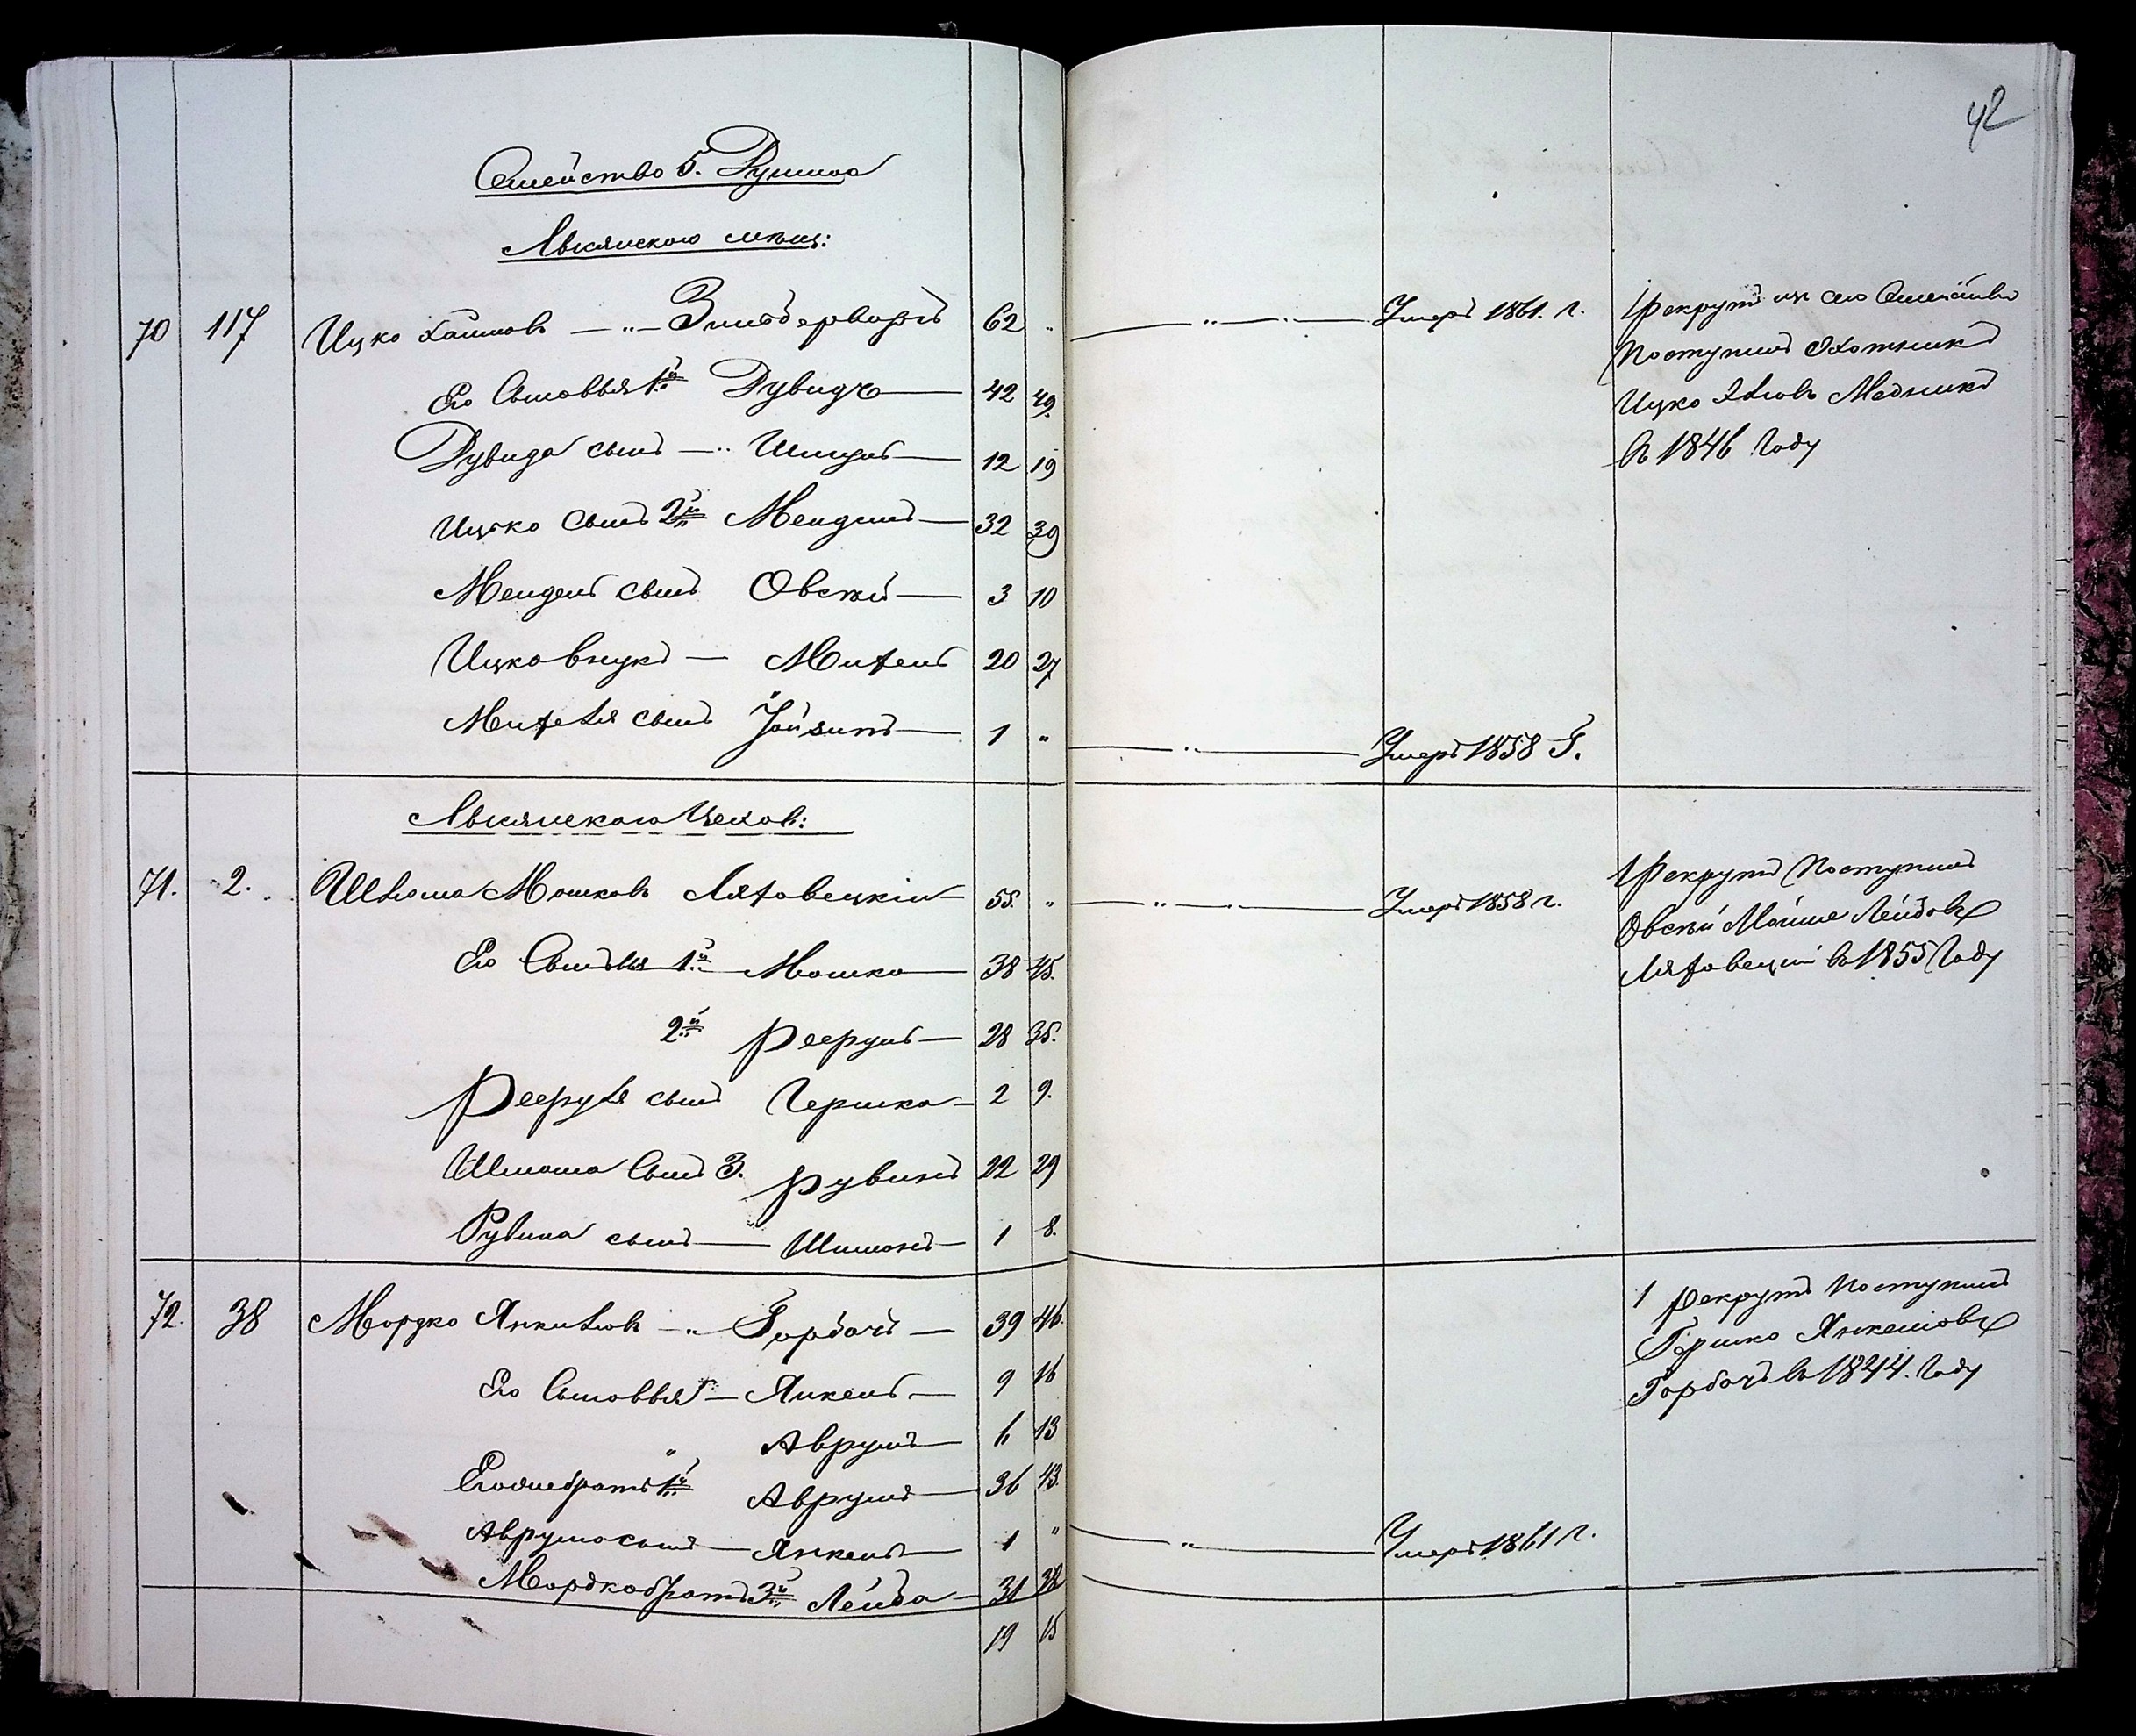 42
Семейство 5. Душъ
Лысянского мѣщ:
70 117 Ицко Хаимовъ —"— Зильберваргъ 62 " —"— Умеръ 1861. г.
1 рекрутъ изъ сего Семейства
Поступилъ Охотникъ
Ицко Хбловъ Медникъ
въ 1846 Году
Его Сыновья 1й Дувидъ — 42 49.
Дувида сынъ —" Шмуль — 12 19
Ицко Сынъ 2й Мендель — 32 39
Мендель сынъ Овсѣй — 3 10
Ицко внукъ — Михель 20 27
Михеля сынъ — 1 " —"— Умеръ 1858 Г.
Лысянского Цехов:
71. 2. Шлома Мошковъ Ляховецкій 55. " —"— Умеръ 1858 г.
1 Рекрутъ Поступилъ
Овсѣй Мойше Лейбовъ
Ляховецкій въ 1855 Году
Его Сыновья 1й — Мошко — 38 45.
2й Рефуль — 28 35.
Рефуля сынъ Гершко — 2 9.
Шлома Сынъ 3. Рувинъ 22 29
Рувина сынъ — Шимонъ — 1 8.
72. 38 Мордко Янкилевъ —" Горбачъ — 39 46.
1 рекрутъ Поступилъ
Гершко Янкелевъ
Горбачъ въ 1844. Году
Его Сыновья — Янкель — 9 16
Аврумъ — 6 13
Его же братъ 1й Аврумъ — 36 43.
Аврума сынъ — Янкель — 1 " —"— Умеръ 1861 г.
Мордко братъ 3й Лейба — 31 38
19 15